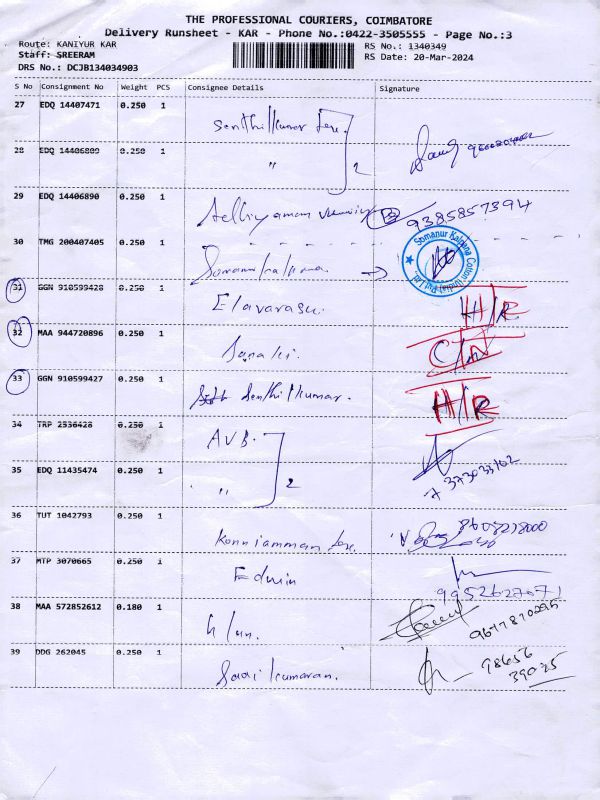 THE PROFESSIONAL COURIERS, COIMBATORE
Delivery Runsheet - KAR - Phone No.:0422-3505555 - Page No.:3
Route: KANIYUR KAR RS No.: 1340349
Staff: SREERAM RS Date: 20-Mar-2024
DRS No.: DCJB134034903
S No Consignment No Weight PCS Consignee Details Signature
27 EDQ 14407471 0.250 1
Senthilkumar
28 EDQ 14406809 0.250 1
" 2
29 EDQ 14406890 0.250 1
9385857394
30 TMG 200407405 0.250 1
Somanur Kalpana Cotton India Pvt Ltd.
31 GGN 910599428 0.250 1
Elavarasu. H/R
32 MAA 944720896 0.250 1
Janaki.
33 GGN 910599427 0.250 1
Senthilkumar. H/R
34 TRP 2536428 0.250 1
AVB.
35 EDQ 11435474 0.250 1
" 2
36 TUT 1042793 0.250 1
Konniamman
37 MTP 3070665 0.250 1
Edwin
38 MAA 572852612 0.180 1
39 DDG 262045 0.250 1
98656
39025
kumaran.